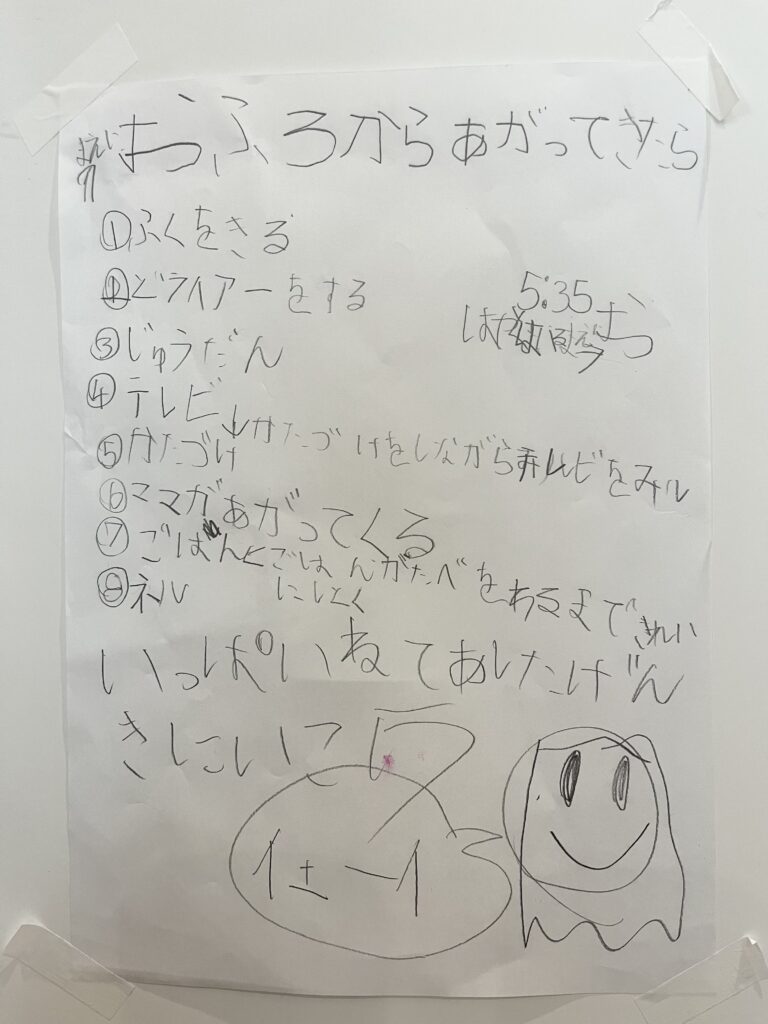 おふろからあがってきたら
①ふくをきる
②ドライアーをする
5:35
③じゅうだん
④テレビ
↓かたづけをしながらテレビをみル
⑤かたづけ
⑥ママガあがってくる
⑦ごはんとごはんがたべをわるまできれい
にしとく
⑧ネル
いっぱいねてあしたげん
きにいこう
イェーイ